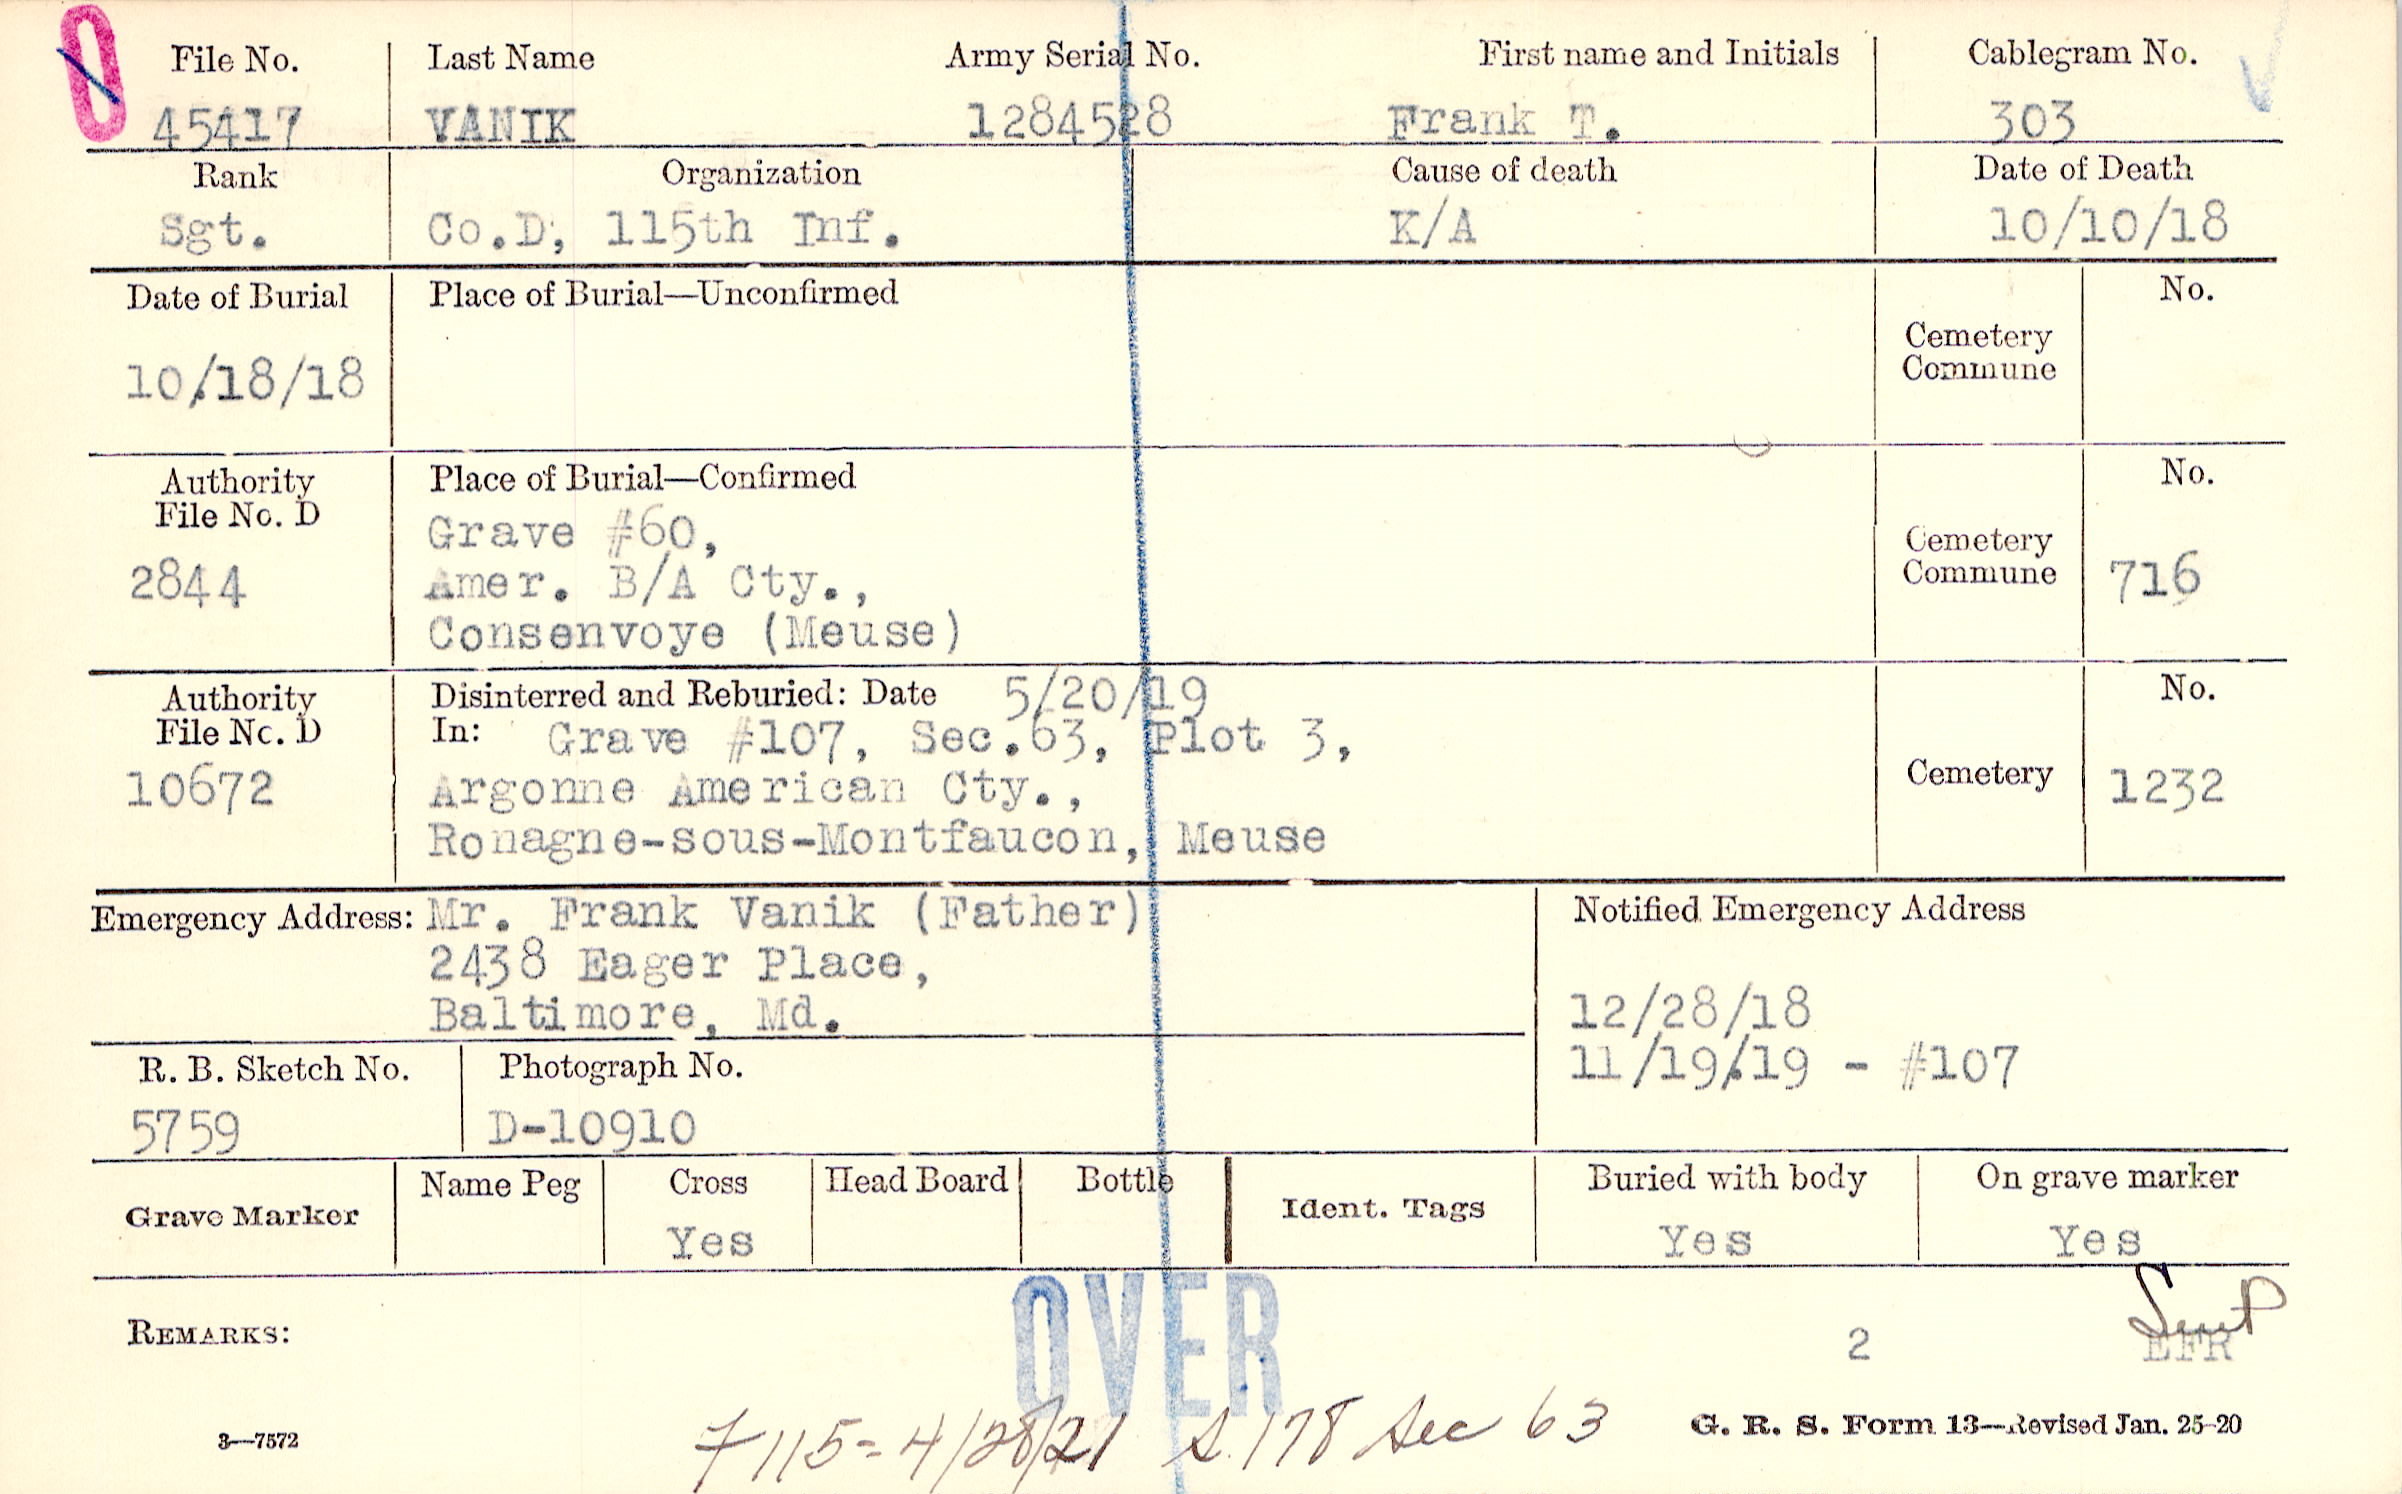 0
File No. Last Name Army Serial No. First name and Initials Cablegram No.
45417 VANIK 1284528 Frank T. 303
Rank Organization Cause of death Date of Death
Sgt. Co.D, 115th Inf. K/A 10/10/18
Date of Burial Place of Burial—Unconfirmed No.
Cemetery
Commune
10/18/18
Authority Place of Burial—Confirmed No.
File No. D
Grave #60, Cemetery
2844 Amer. B/A Cty., Commune 716
Consenvoye (Meuse)
Authority Disinterred and Reburied: Date 5/20/19 No.
File No. D In: Grave #107, Sec.63, Plot 3,
10672 Argonne American Cty., Cemetery 1232
Ronagne-sous-Montfaucon, Meuse
Emergency Address: Mr. Frank Vanik (Father) Notified Emergency Address
2438 Eager Place,
Baltimore, Md. 12/28/18
11/19/19 - #107
R. B. Sketch No. Photograph No.
5759 D-10910
Grave Marker Name Peg Cross Head Board Bottle Ident. Tags Buried with body On grave marker
Yes Yes Yes
OVER
REMARKS: 2 EFR
7115=4/28/21 S.178 Sec 63
3—7572 G. R. S. Form 13—Revised Jan. 25-20